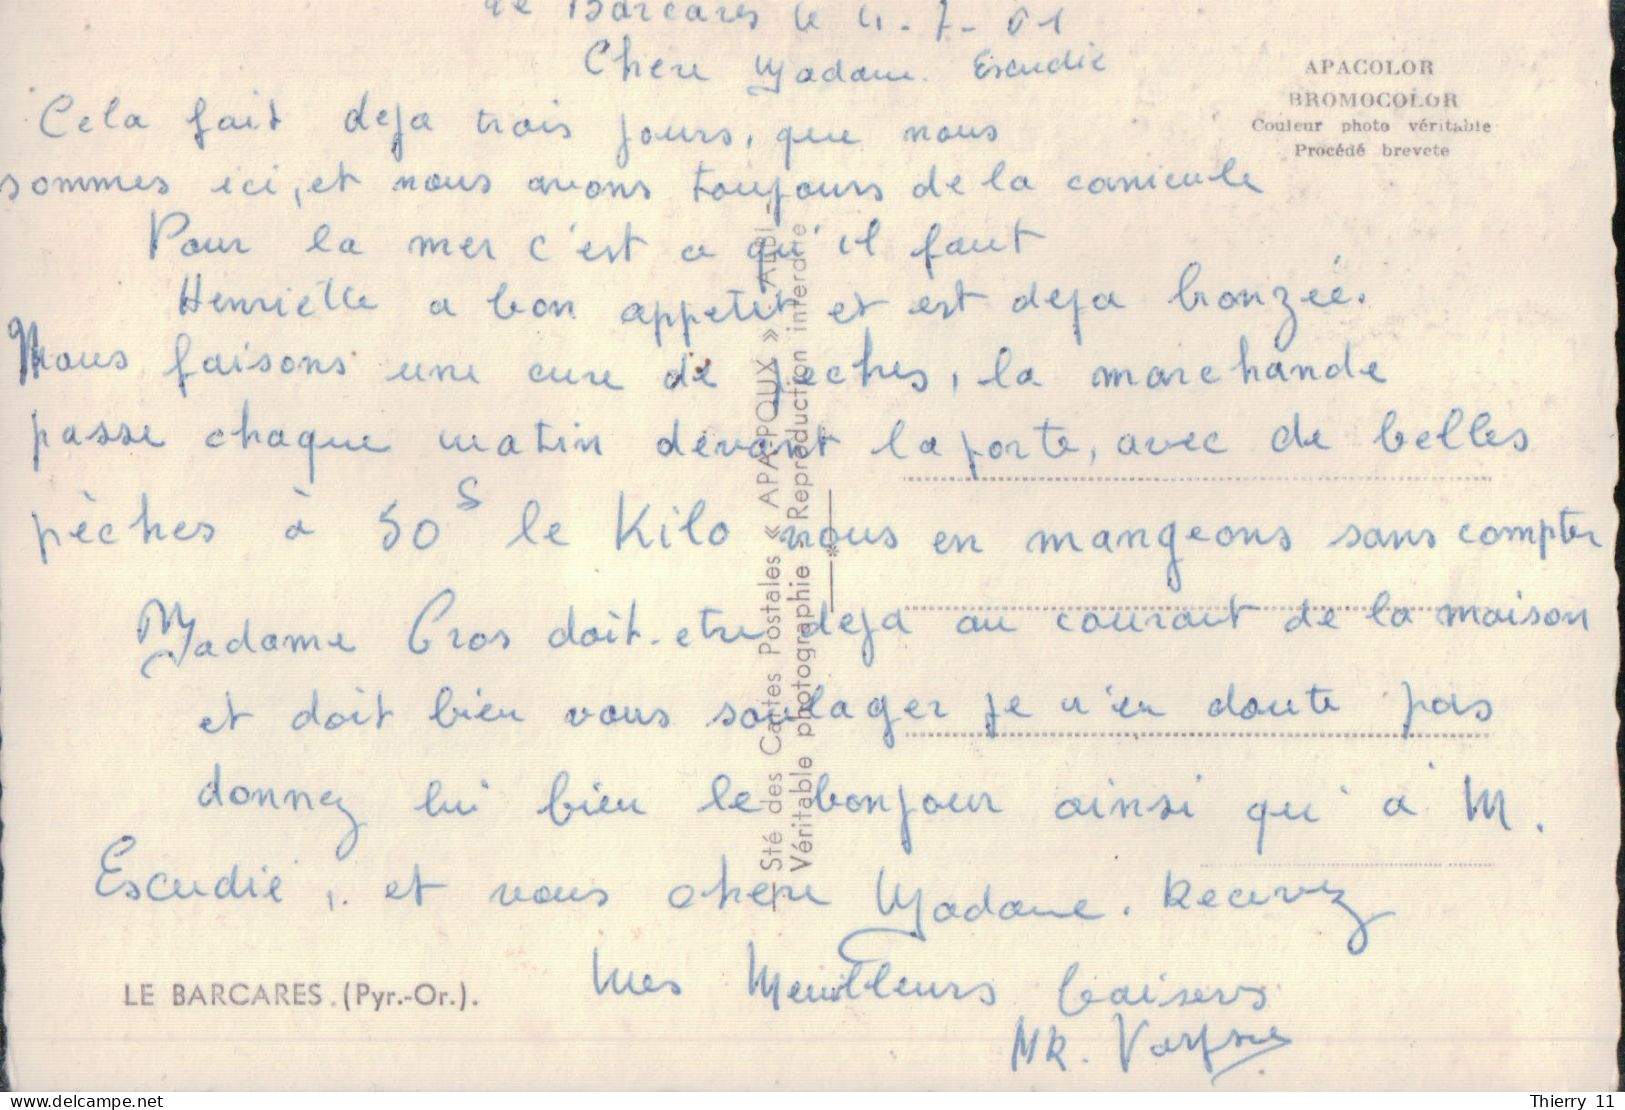 Le Barcares le 4-7-61
Chere Madame Escudié
Cela fait deja trois jours, que nous
sommes ici, et nous avons toujours de la canicule
Pour la mer c'est ce qu'il faut
Henriette a bon appetit et est deja bronzée.
Nous faisons une cure de peches, la marchande
passe chaque matin devant la porte, avec de belles
pèches à 50 le Kilo nous en mangeons sans compter
Madame Cros doit-etre deja au courant de la maison
et doit bien vous soulager je n'en doute pas
donnez lui bien le bonjour ainsi qu'à M.
Escudié, et vous chere Madame. Recevez
mes Meuilleurs baisers
MR.
APACOLOR
BROMOCOLOR
Couleur photo véritable
Procédé brevete
Sté des Cartes Postales « APA-POUX » ALBI
Véritable photographie - Reproduction interdite
LE BARCARES. (Pyr.-Or.).
www.delcampe.net
Thierry 11